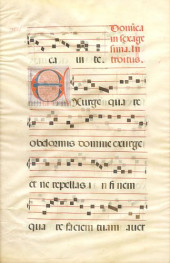 Dominica
in sexage
sima. In
troitus.
ca ui te.
Exurge qua re
obdormis domine exurge
et ne repellas in finem
qua re faciem tuam auer